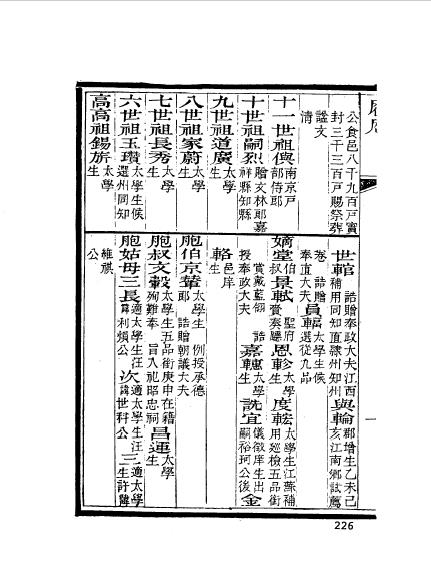 公食邑八千九百戶實
封三千三百戶賜祭葬
諡文
清
十一世祖僎 南京戶部侍郎
十世祖嗣烈 贈文林郎嘉祥縣知縣
九世祖道廣 太學生
八世祖家蔚 太學生
七世祖長秀 太學生
六世祖玉瓚 太學生候選州同知
高高祖錫旂 太學生
世輨 誥贈奉政大夫江西補用同知直隸州知州 與輪 郡增生乙未己亥江南鄉試薦
卷 誥贈奉直大夫 員輻 太學生候選從九品
嫡堂伯叔景軾 聖府賫奏 恩軫 太學生 度輇 太學生江蘇補用巡檢五品銜
賞戴藍翎 誥授奉政大夫 嘉 太學生 詵宜 儀徵庠生出嗣裕珂公後 金
輅 邑庠生
胞伯京華 太學生 例授承德郎 誥贈朝議大夫
胞叔文轂 太學生五品銜庚申在籍殉難奉 旨入祀昭忠祠 昌運 太學生
胞姑母三 長適太學生汪諱利煩公 次適太學生汪諱世科公 三適太學生許諱
雍騏公
226